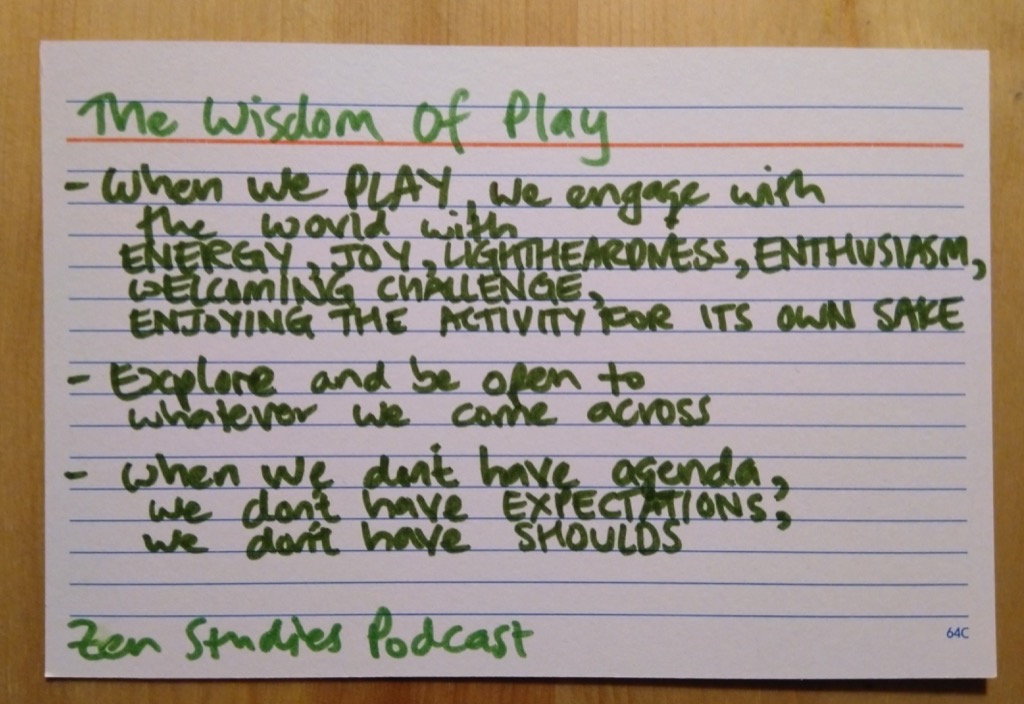 The Wisdom Of Play
- When we PLAY, we engage with
the world with
ENERGY, JOY, LIGHTHEARDNESS, ENTHUSIASM,
WELCOMING CHALLENGE,
ENJOYING THE ACTIVITY FOR ITS OWN SAKE
- Explore and be open to
whatever we come across
- When we don't have agenda,
we don't have EXPECTATIONS,
we don't have SHOULDS
Zen Studies Podcast
64C